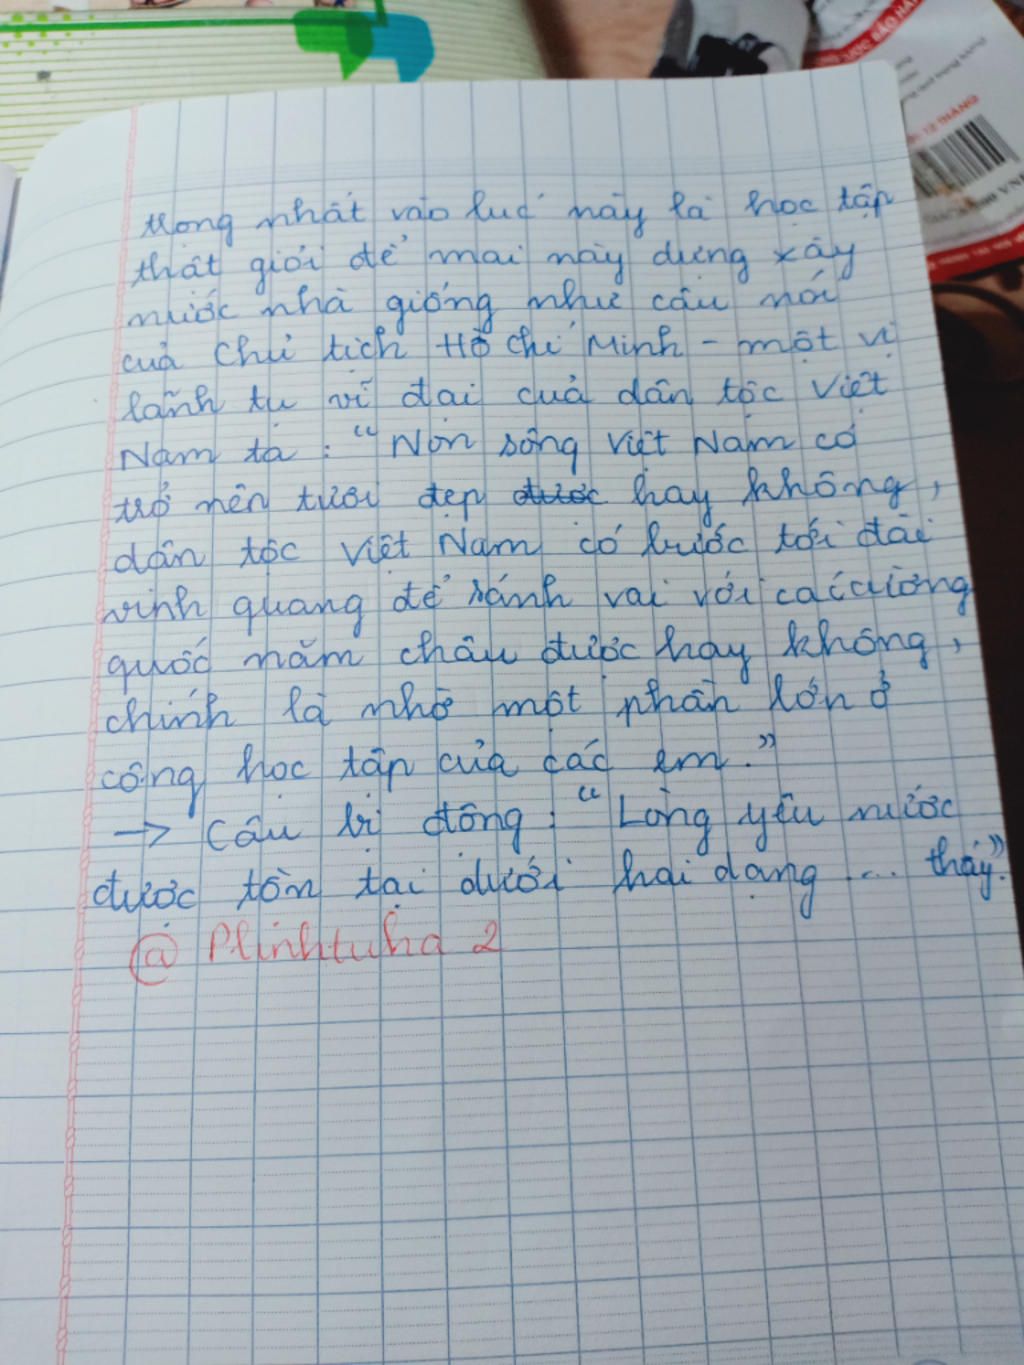 trọng nhất vào lúc này là học tập
thật giỏi để mai này dựng xây
nước nhà giống như câu nói
của Chủ tịch Hồ Chí Minh - một vị
lãnh tụ vĩ đại của dân tộc Việt
Nam ta : "Non sông Việt Nam có
trở nên tươi đẹp được hay không,
dân tộc Việt Nam có bước tới đài
vinh quang để sánh vai với các cường
quốc năm châu được hay không,
chính là nhờ một phần lớn ở
công học tập của các em."
→ Câu bị động : "Lòng yêu nước
được tồn tại dưới hai dạng ... thấy".
@ Plinhtuha 2
12 THÁNG